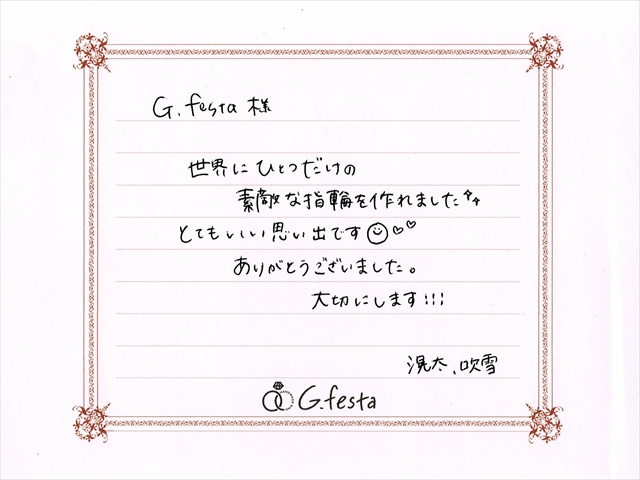 G.festa 様
世界にひとつだけの
素敵な指輪を作れました
とてもいい思い出です
ありがとうございました。
大切にします!!!
滉太、吹雪
G.festa